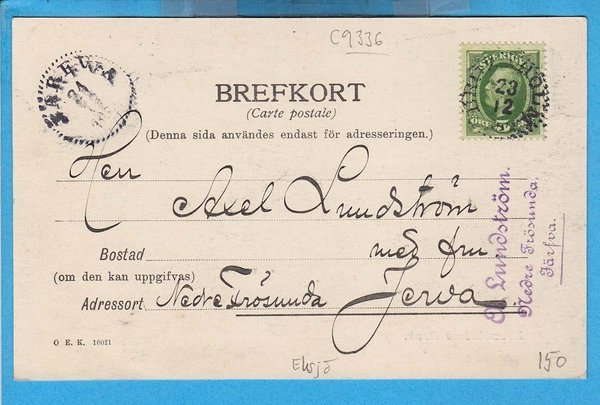 C9336
JERFVA
SVERIGE
23
12
5 ÖRE
BREFKORT
(Carte postale)
(Denna sida användes endast för adresseringen.)
Herr
Axel Lundström
Bostad
med fru
(om den kan uppgifvas)
Adressort
Nedre Frösunda Jerva
Lundström.
Nedre Frösunda.
Järfva.
O. E. K. 16021
Eksjö
150